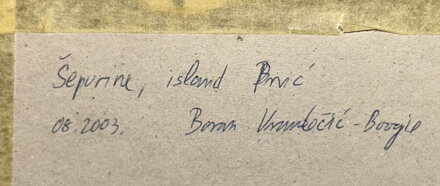 Šepurine, island Prvić
08.2003. Boran -Boogie